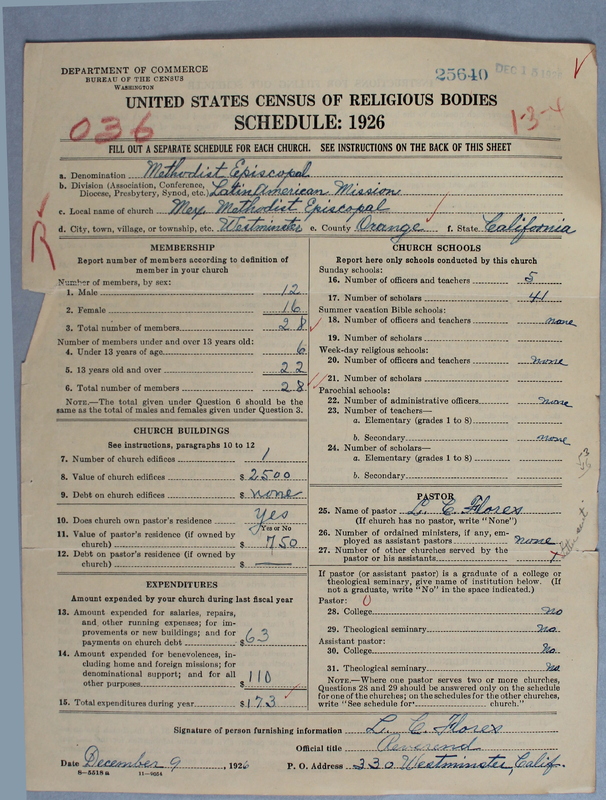 DEPARTMENT OF COMMERCE
BUREAU OF THE CENSUS
WASHINGTON
25640
DEC 13
UNITED STATES CENSUS OF RELIGIOUS BODIES
SCHEDULE: 1926
036
1-3-4
FILL OUT A SEPARATE SCHEDULE FOR EACH CHURCH. SEE INSTRUCTIONS ON THE BACK OF THIS SHEET
a. Denomination Methodist Episcopal
b. Division (Association, Conference, Diocese, Presbytery, Synod, etc.) Latin American Mission
c. Local name of church Mex. Methodist Episcopal
d. City, town, village, or township, etc. Westminster e. County Orange f. State California
MEMBERSHIP
Report number of members according to definition of
member in your church
Number of members, by sex:
1. Male 12
2. Female 16
3. Total number of members 28
Number of members under and over 13 years old:
4. Under 13 years of age 6
5. 13 years old and over 22
6. Total number of members 28
NOTE.—The total given under Question 6 should be
same as the total of males and females given under Question 3.
CHURCH BUILDINGS
See instructions, paragraphs 10 to 12
7. Number of church edifices 1
8. Value of church edifices $ 2500
9. Debt on church edifices $ none
10. Does church own pastor's residence Yes
Yes or No
11. Value of pastor's residence (if owned by
church) $ 750
12. Debt on pastor's residence (if owned by
church) $ —
EXPENDITURES
Amount expended by your church during last fiscal year
13. Amount expended for salaries, repairs,
and other running expenses; for im-
provements or new buildings; and for
payments on church debt $ 63
14. Amount expended for benevolences, in-
cluding home and foreign missions; for
denominational support; and for all
other purposes $ 110
15. Total expenditures during year $ 173
CHURCH SCHOOLS
Report here only schools conducted by this church
Sunday schools:
16. Number of officers and teachers 5
17. Number of scholars 41
Summer vacation Bible schools:
18. Number of officers and teachers none
19. Number of scholars
Week-day religious schools:
20. Number of officers and teachers none
21. Number of scholars
Parochial schools:
22. Number of administrative officers none
23. Number of teachers—
a. Elementary (grades 1 to 8)
b. Secondary none
24. Number of scholars—
a. Elementary (grades 1 to 8)
b. Secondary
PASTOR
25. Name of pastor L. C. Flores
(If church has no pastor, write "None")
26. Number of ordained ministers, if any, em-
ployed as assistant pastors none
27. Number of other churches served by the
pastor or his assistants
If pastor (or assistant pastor) is a graduate of a college or
theological seminary, give name of institution below. (If
not a graduate, write "No" in the space indicated.)
Pastor: 0
28. College no
29. Theological seminary no.
Assistant pastor:
30. College No.
31. Theological seminary No
NOTE.—Where one pastor serves two or more churches,
Questions 28 and 29 should be answered only on the schedule
for one of the churches; on the schedules for the other churches,
write "See schedule for church."
Signature of person furnishing information L. C. Flores
Official title Reverend
Date December 9, 1926 P. O. Address 330 Westminster, Calif.
8-5518 a 11-9664